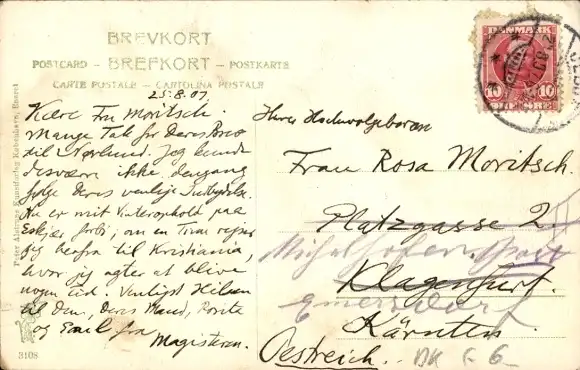 BREVKORT
POSTCARD – BREFKORT – POSTKARTE
CARTE POSTALE – CARTOLINA POSTALE
DANMARK
10 10
ØRE
25.8.07.
Kære Fru Moritsch.
Mange Tak for Deres Brev
til Nørlund. Jeg kunde
desværre ikke dengang
følge Deres venlige Indbydelse.
Nu er mit Vinterophold paa
forbi; om en Time rejser
jeg herfra til Kristiania,
hvor jeg agter at blive
nogen Tid. Venligst Hilsen
til Dem, Deres Mand,
og Emil fra
Magisteren.
Ihrer Hochwolgeboren
Frau Rosa Moritsch.
Platzgasse 2.
Klagenfurt.
Kärnten
Oestreich.
DK
3108